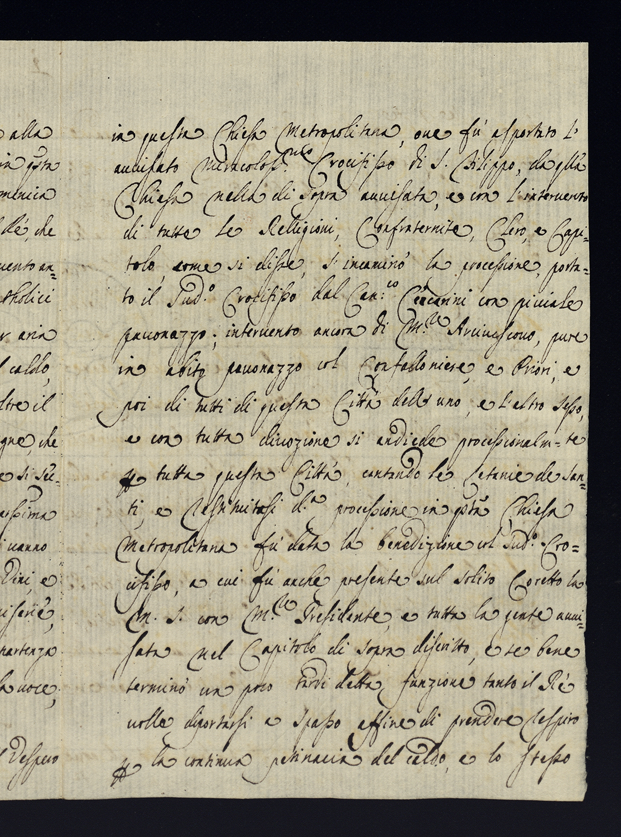 alla
in qsta
menica
Ré, che
vento an
atholici
er aria
l caldo,
ltre il
gne, che
e si sti-
assima
i vanno
Dini, e
viserie,
partenza
la voce,
Vespero
in questa Chiesa Metropolitana, ove fú asportato l'
avvisato Miracolosmo Crocifisso di S. Filippo, da qlla
Chiesa nella di sopra avvisata, e con l'intervento
di tutte le Religioni, Confraternite, Clero, e Capi=
tolo, come si disse, s'incaminó la processione, porta=
to il Sudo Crocifisso dal Canco Ceccarini con piviale
pavonazzo; intervento ancora di Mr Arcivescovo, pure
in abito pavonazzo col Confaloniere, e Priori, e
poi di tutti di questa Cittá dell'uno, e l'altro sesso,
e con tutta divozione si andiede processionalm-te
p tutta questa Cittá, cantando le Letanie de San-
ti, e riassuntasi da processione in qsta Chiesa
Metropolitana fú data la benedizione col Sudo Cro=
cifisso, a cui fú anche presente sul solito Coretto la
M. S. con Mr Presidente, e tutta la gente avvi=
sata nel Capitolo di sopra descritto, e se bene
terminó un poco tardi detta funzione tanto il Ré
volle diportarsi a spasso affine di prendere respiro
p la continua pertinacia del caldo, e lo stesso